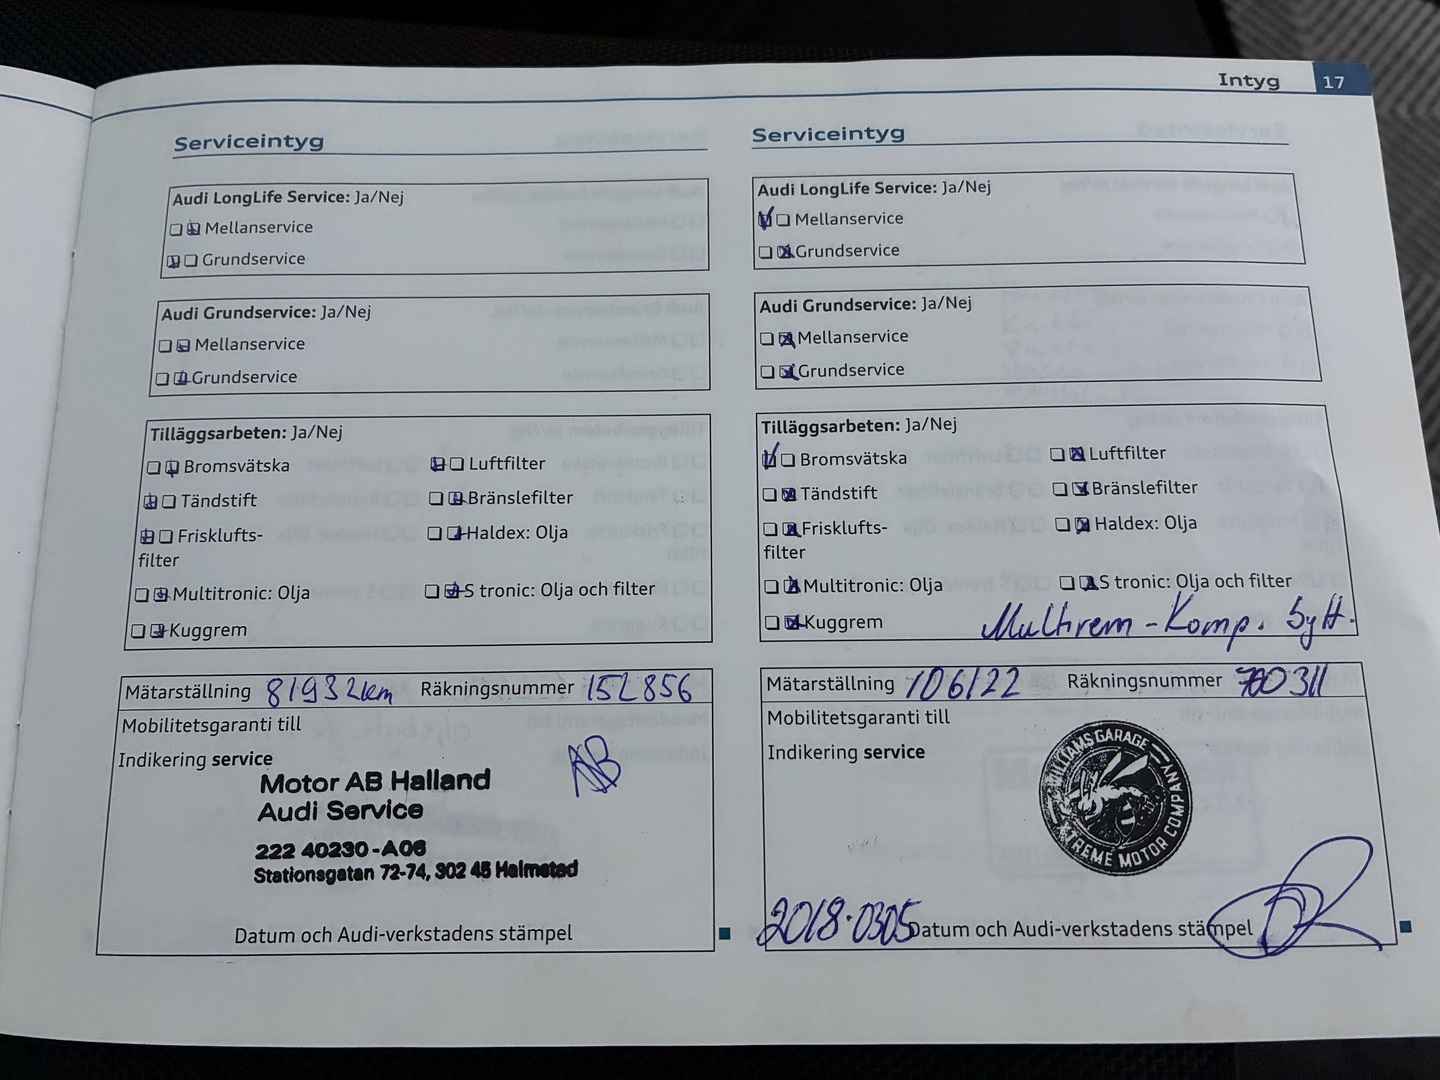 Intyg 17
Serviceintyg
Audi LongLife Service: Ja/Nej
Mellanservice
Grundservice
Audi Grundservice: Ja/Nej
Mellanservice
Grundservice
Tilläggsarbeten: Ja/Nej
Bromsvätska Luftfilter
Tändstift Bränslefilter
Frisklufts- Haldex: Olja
filter
Multitronic: Olja S tronic: Olja och filter
Kuggrem
Mätarställning 81932km Räkningsnummer 152856
Mobilitetsgaranti till
Indikering service
AB
Motor AB Halland
Audi Service
222 40230-A06
Stationsgatan 72-74, 302 45 Halmstad
Datum och Audi-verkstadens stämpel
Serviceintyg
Audi LongLife Service: Ja/Nej
Mellanservice
Grundservice
Audi Grundservice: Ja/Nej
Mellanservice
Grundservice
Tilläggsarbeten: Ja/Nej
Bromsvätska Luftfilter
Tändstift Bränslefilter
Frisklufts- Haldex: Olja
filter
Multitronic: Olja S tronic: Olja och filter
Kuggrem Multirem-Komp. Sytt.
Mätarställning 106122 Räkningsnummer 700311
Mobilitetsgaranti till
Indikering service
WILLIAMS GARAGE
XTREME MOTOR COMPANY
2018-0305 Datum och Audi-verkstadens stämpel